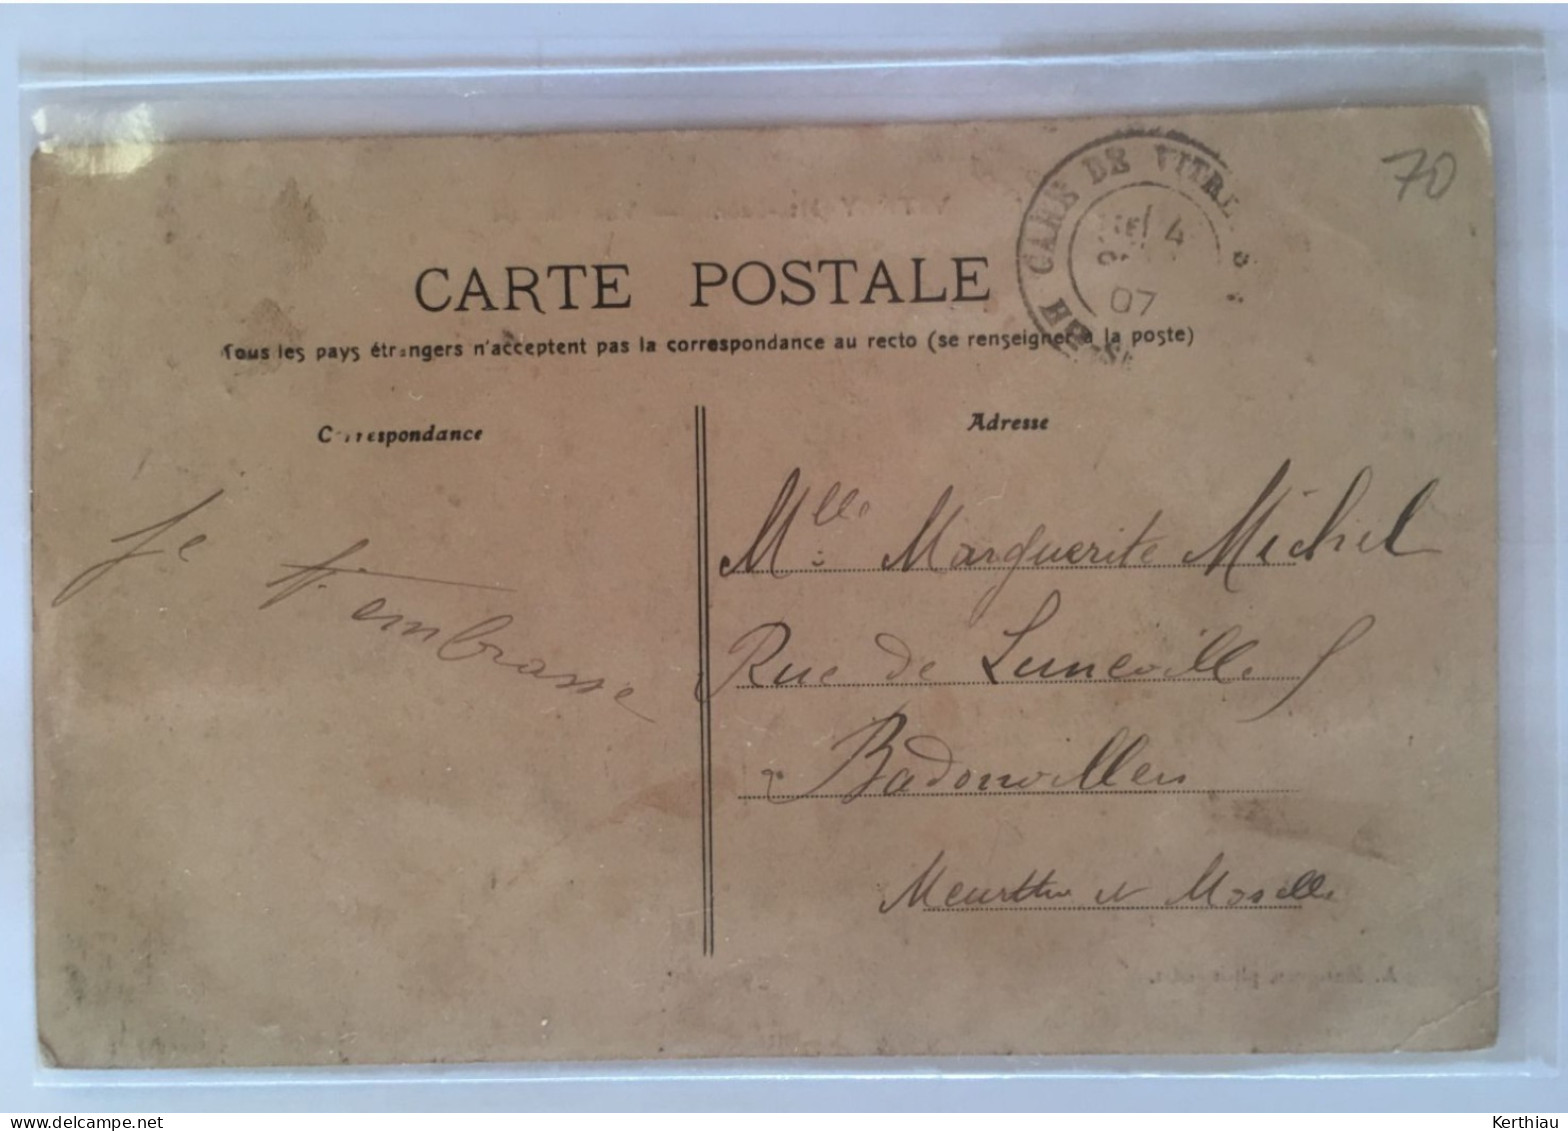 70
GARE DE VITRY
4
07
CARTE POSTALE
Tous les pays étrangers n'acceptent pas la correspondance au recto (se renseigner à la poste)
Correspondance
Adresse
Je t'embrasse
Mlle Marguerite Michel
Rue de Luneville
Badonviller
Meurthe et Moselle
www.delcampe.net
Kerthiau